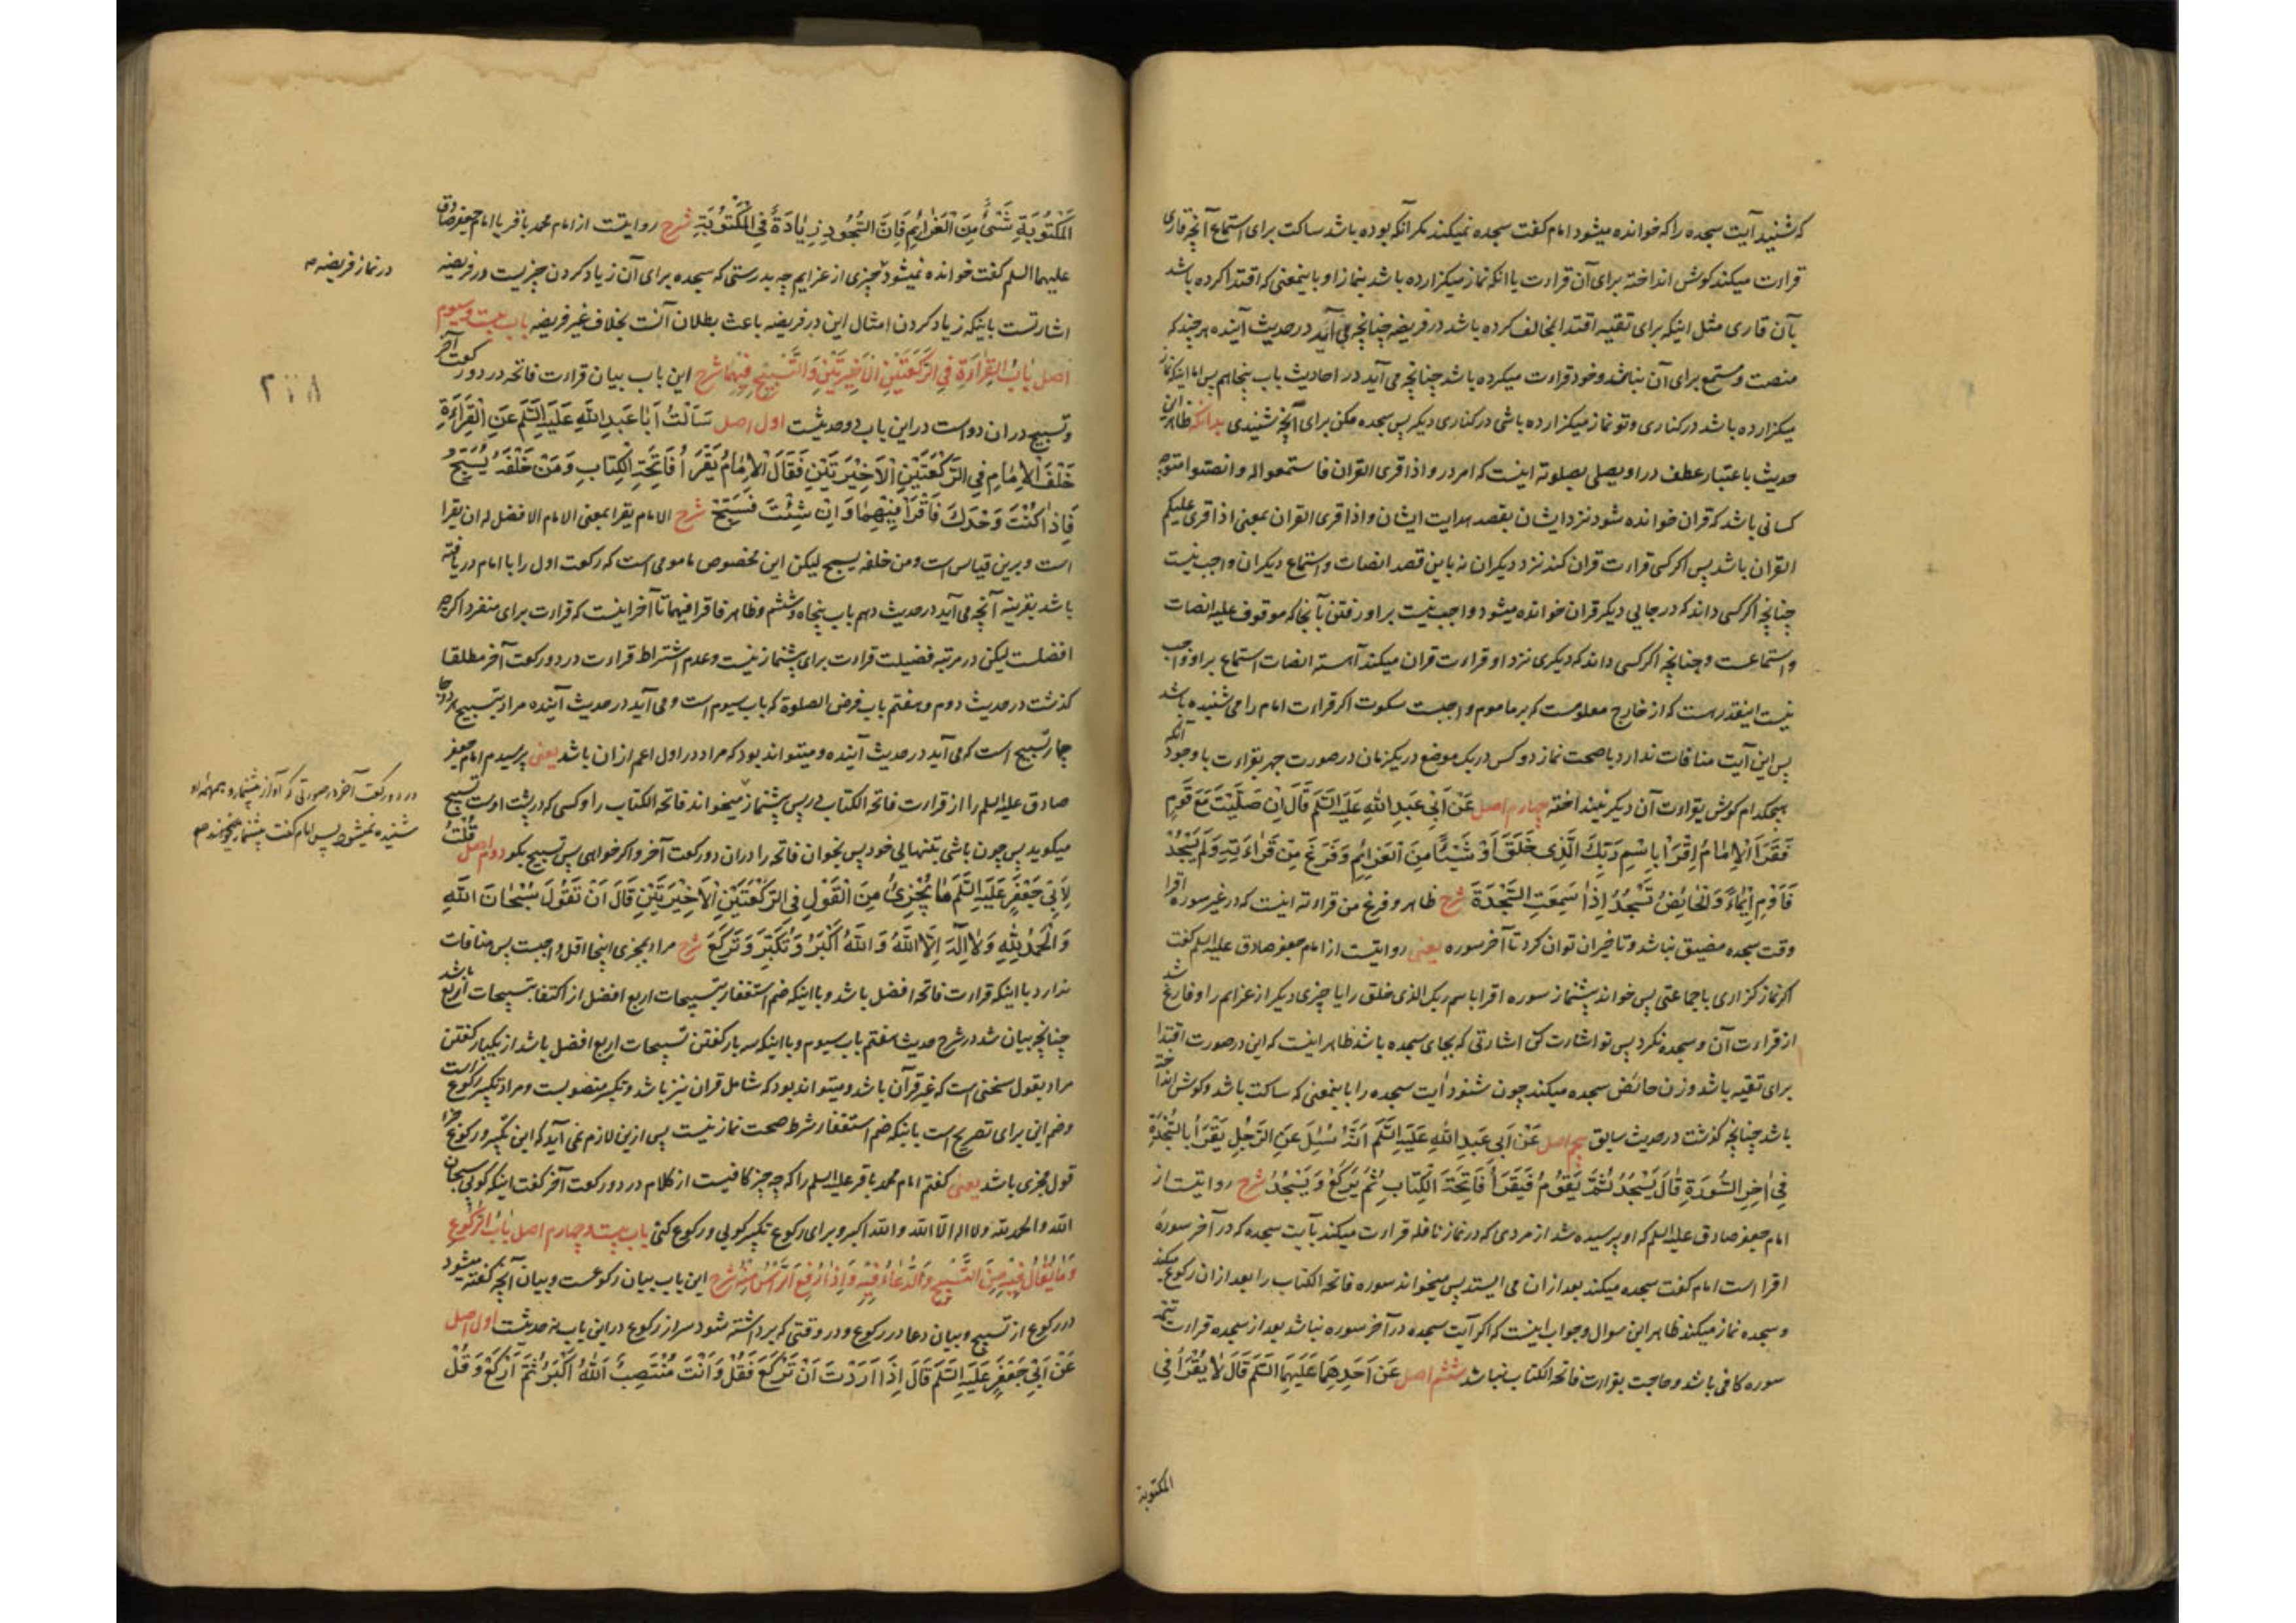 که شنید آیت سجده را که خوانده میشود امام کفت سجده نمیکند مکر آنکه بوده باشد ساکت برای استماع آنچه قاری
قراءت میکند کوش انداخته برای آن قراءت یا انکه نماز میکزارده باشد بنماز او باینمعنی که اقتدا کرده باشد
بآن قاری مثل اینکه برای تقیه اقتدا بمخالف کرده باشد در فریضه چنانچه می آید در حدیث آینده هر چند که
منصت و مستمع برای آن نباشد و خود قراءت میکرده باشد چنانچه می آید در احادیث باب پنجاهم پس اما اینکه نماز
میکزارده باشد در کناری و تو نماز میکزارده باشی در کناری دیکر پس سجده مکن برای آنچه شنیدی بدانکه ظاهر این
حدیث باعتبار عطف در او یصلی بصلوته اینست که امر در و اذا قری القران فاستمعوا له و انصتوا متوجه
کسانی باشد که قران خوانده شود نزد ایشان بقصد هدایت ایشان و اذا قری القران بمعنی اذا قری علیکم
القران باشد پس اکر کسی قراءت قران کند نزد دیکران نه باین قصد انصات و استماع دیکران واجب نیست
چنانچه اکر کسی داند که در جایی دیکر قران خوانده میشود واجب نیست بر او رفتن بآنجا که موقوف علیه انصات
و استماعست و چنانچه اکر کسی داند که دیکری نزد او قراءت قران میکند آهسته انصات استماع بر او واجب
نیست اینقدر هست که از خارج معلومست که بر ماموم واجبست سکوت اکر قراءت امام را می شنیده باشد
پس این آیت منافات ندارد با صحت نماز دو کس در یک موضع در یکزمان در صورت جهر بقراءت با وجود آنکه
هیچکدام کوش بقراءت آن دیکر نینداخته چهارم اصل عَنْ اَبِی عَبدِ اللهِ عَلَیهِ السَّلَم قَالَ اِنْ صَلَّیْتَ مَعَ قَومٍ
فَقَرَاَ الْاِمَامُ اِقْرَاْ بِاسْمِ رَبِّكَ الَّذِی خَلَقَ اَوْ شَیْئًا مِنَ العَزَائِمِ وَ فَرَغَ مِنْ قَرَاءَتِهِ وَ لَم یَسْجُدْ
فَاَوْمِ اِیْمَاءً وَ الْحَائِضُ تَسْجُدُ اِذَا سَمِعَتِ السَّجْدَةَ شرح ظاهر و فرغ من قراءته اینست که در غیر سوره اقرا
وقت سجده مضیق نباشد و تاخیر ان توان کرد تا آخر سوره یعنی روایتست از امام جعفر صادق علیه السلم کفت
اکر نماز کزاری با جماعتی پس خواند پیشنماز سوره اقرا باسم ربک الذی خلق را یا چیزی دیکر از عزایم را و فارغ شد
از قراءت آن و سجده نکرد پس تو اشارت کن اشارتی که بجای سجده باشد ظاهر اینست که این در صورت اقتدا
برای تقیه باشد و زن حائض سجده میکند چون شنود آیت سجده را باینمعنی که ساکت باشد و کوش انداخته
باشد چنانچه کذشت در حدیث سابق پنجم اصل عَنْ اَبِی عَبدِ اللهِ عَلَیهِ السَّلَم اَنَّهُ سُئِلَ عَنِ الرَّجُلِ یَقْرَاُ بِالسَّجْدَةِ
فِی آخِرِ السُّورَةِ قَالَ یَسْجُدُ ثُمَّ یَقُومُ فَیَقْرَاُ فَاتِحَةَ الکِتَابِ ثُمَّ یَرْکَعُ وَ یَسْجُدُ شرح روایتست از
امام جعفر صادق علیه السلم که او پرسیده شد از مردی که در نماز نافله قراءت میکند بآیت سجده که در آخر سورۀ
اقرا است امام کفت سجده میکند بعد ازان می ایستد پس میخواند سوره فاتحة الکتاب را بعد از ان رکوع میکند
و سجده نماز میکند ظاهر این سوال و جواب اینست که اکر آیت سجده در آخر سوره نباشد بعد از سجده قراءت تتمه
سوره کافی باشد و حاجت بقراءت فاتحة الکتاب نباشد ششم اصل عَنْ اَحَدِهِمَا عَلَیهِمَا السَّلَم قَالَ لَا یُقْرَاُ فِی
المکتوبة
المَکْتُوبَةِ شَیْءٌ مِنَ الْعَزَائِمِ فَاِنَّ السُّجُودَ زِیَادَةٌ فِی الْمَکْتُوبَةِ شرح روایتست از امام محمد باقر یا امام جعفر صادق
علیهما السلم کفت خوانده نمیشود چیزی از عزایم چه بدرستی که سجده برای آن زیاد کردن چیزیست در فریضه
در نماز فریضه صح
اشارتست باینکه زیاد کردن امثال این در فریضه باعث بطلان آنست بخلاف غیر فریضه باب بیست و سیوم
اصل بَابُ القِرَاءَةِ فِی الرَّکْعَتَیْنِ الْاَخِیْرَتَیْنِ وَ التَّسْبِیحِ فِیْهِمَا شرح این باب بیان قراءت فاتحه در دو رکعت آخر
۲۲۸
و تسبیح در ان دو است در این باب دو حدیثست اول اصل سَاَلْتُ اَبَا عَبدِ اللهِ عَلَیهِ السَّلَم عَنِ الْقِرَاءَةِ
خَلْفَ الْاِمَامِ فِی الرَّکْعَتَیْنِ الْاَخِیْرَتَیْنِ فَقَالَ الْاِمَامُ یَقْرَاُ فَاتِحَةَ الکِتَابِ وَ مَنْ خَلْفَهُ یُسَبِّحُ
فَاِذَا کُنْتَ وَحْدَكَ فَاقْرَاْ فِیْهِمَا وَ اِنْ شِئْتَ فَسَبِّحْ شرح الامام یقرا بمعنی الامام الافضل له ان یقرا
است و برین قیاس است و من خلفه یسبح لیکن این مخصوص مامومی است که رکعت اول را با امام دریافته
باشد بقرینه آنچه می آید در حدیث دهم باب پنجاه و ششم و ظاهر فاقرا فیهما تا آخر اینست که قراءت برای منفرد اکرچه
افضلست لیکن در مرتبه فضیلت قراءت برای پیشنماز نیست و عدم اشتراط قراءت در دو رکعت آخر مطلقا
کذشت در حدیث دوم و هفتم باب فرض الصلوة که باب سیوم است و می آید در حدیث آینده مراد بتسبیح در دو جا
چهار تسبیح است که می آید در حدیث آینده و میتواند بود که مراد در اول اعم از ان باشد یعنی پرسیدم امام جعفر
صادق علیه السلم را از قراءت فاتحة الکتاب در پس پیشنماز میخواند فاتحة الکتاب را و کسی که در پشت اوست تسبیح
در دو رکعت آخر در صورتی که آواز پیشنماز و همهمه او
شنیده نمیشود پس امام کفت پیشنماز میخواند صح
میکوید پس چون باشی بتنهایی خود پس بخوان فاتحه را در ان دو رکعت آخر و اکر خواهی پس تسبیح بکو دوم اصل قُلْتُ
لِاَبِی جَعْفَرٍ عَلَیهِ السَّلَم مَا یُجْزِئُ مِنَ الْقَولِ فِی الرَّکْعَتَیْنِ الْاَخِیْرَتَیْنِ قَالَ اَنْ تَقُولَ سُبْحَانَ اللهِ
وَ الْحَمْدُ لِلّهِ وَ لَا اِلَهَ اِلَّا اللهُ وَ اللهُ اَکْبَرُ وَ تُکَبِّرَ وَ تَرْکَعَ شرح مراد بمجزی اینجا اقل واجبست پس منافات
ندارد با اینکه قراءت فاتحه افضل باشد و با اینکه ضم استغفار بتسبیحات اربع افضل از اکتفا بتسبیحات اربع باشد
چنانچه بیان شد در شرح حدیث هفتم باب سیوم و با اینکه سه بار کفتن تسبیحات اربع افضل باشد از یکبار کفتن
مراد بقول سخنی است که غیر قرآن باشد و میتواند بود که شامل قران نیز باشد و تکبر منصوبست و مراد تکبیر رکوع است
و ضم این برای تصریح است باینکه ضم استغفار شرط صحت نماز نیست پس ازین لازم نمی آید که این تکبیر و رکوع جزء
قول مجزی باشد یعنی کفتم امام محمد باقر علیه السلم را که چه چیز کافیست از کلام در دو رکعت آخر کفت اینکه کویی سبحان
الله و الحمد لله و لا اله الا الله و الله اکبر و برای رکوع تکبیر کویی و رکوع کنی باب بیست و چهارم اصل بَابُ الرُّکُوعِ
وَ مَا یُقَالُ فِیْهِ مِنَ التَّسْبِیحِ وَ الدُّعَاءِ فِیْهِ وَ اِذَا رُفِعَ الرَّاْسُ مِنْهُ شرح این باب بیان رکوعست و بیان آنچه کفته میشود
در رکوع از تسبیح و بیان دعا در رکوع و در وقتی که برداشته شود سر از رکوع در این باب نه حدیثست اول اصل
عَنْ اَبِی جَعْفَرٍ عَلَیهِ السَّلَم قَالَ اِذَا اَرَدْتَ اَنْ تَرْکَعَ فَقُلْ وَ اَنْتَ مُنْتَصِبٌ اَللهُ اَکْبَرُ ثُمَّ ارْکَعْ وَ قُلْ